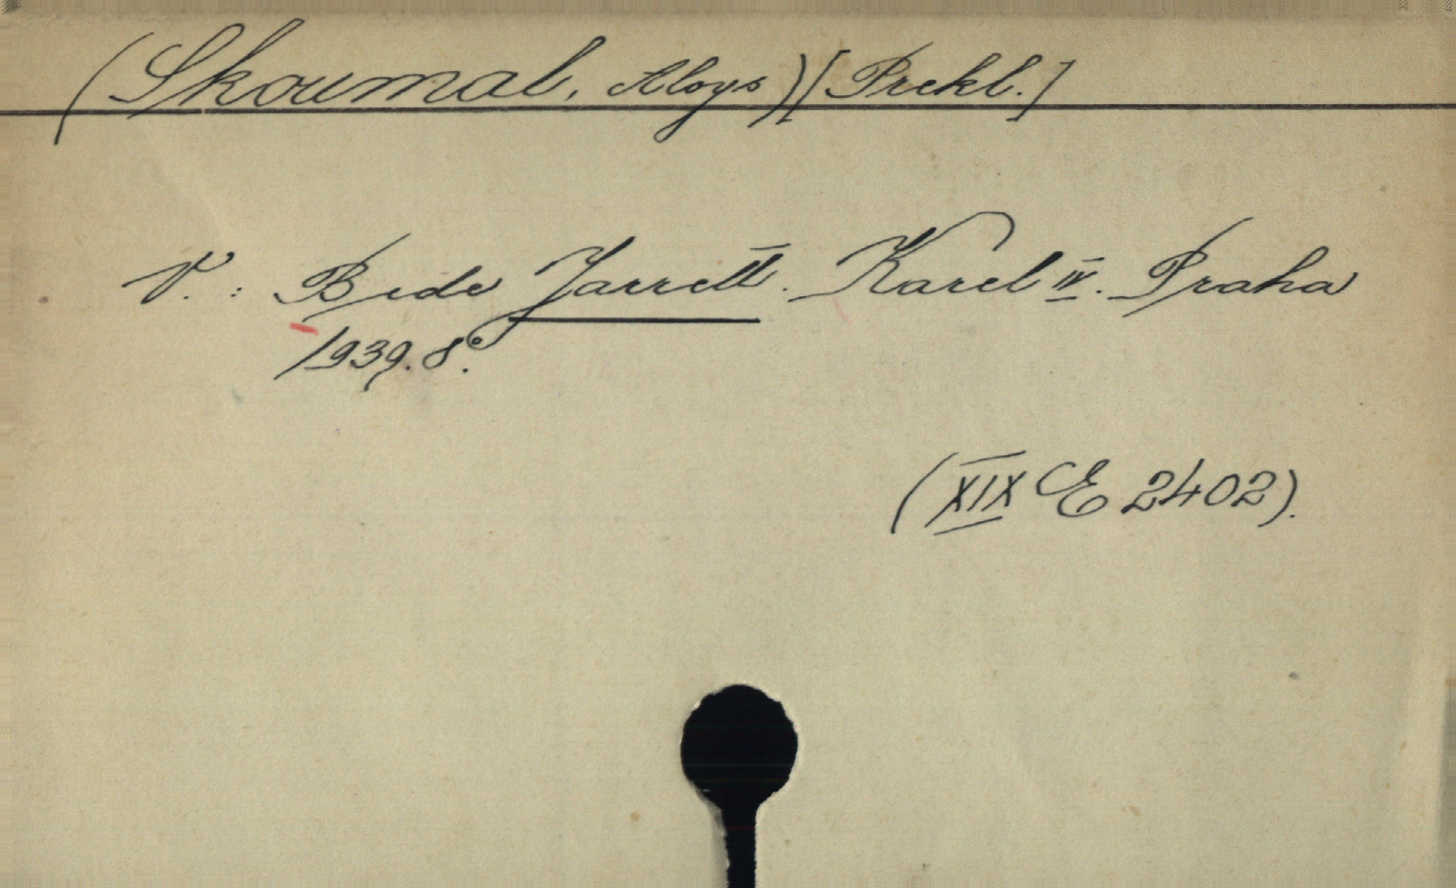 (Skoumal, Aloys) [Prekl.]
V.: Bede Jarrett. Karel IV. Praha
1939. 8°.
(XIX E 2402).